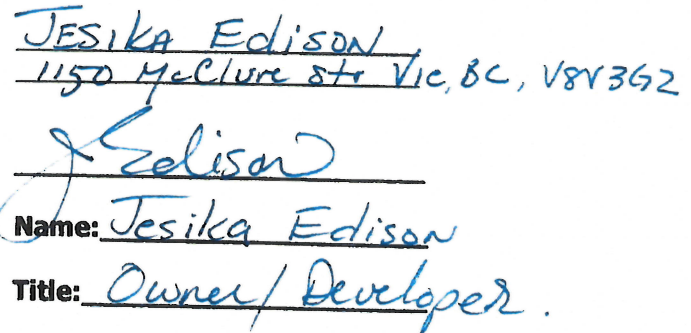 JESIKA EdisoN
1150 McClure str Vic, BC, V8V3G2
J Edison
Name: Jesika Edison
Title: Owner/Developer.